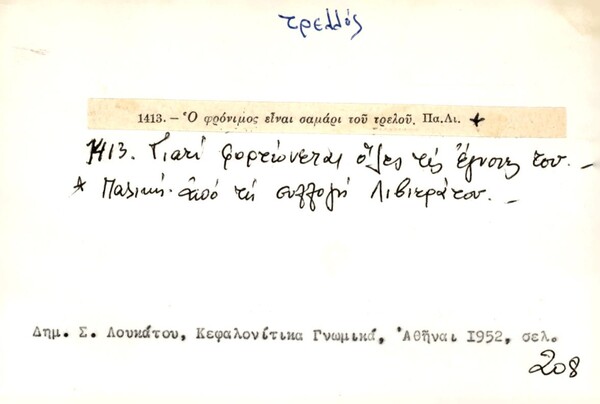 τρελλός
1413. — Ὁ φρόνιμος εἶναι σαμάρι τοῦ τρελοῦ. Πα.Λι. *
1413. Γιατί φορτώνεται ὅλες τίς ἔγνοιες του. —
* Παλική· ἀπό τή συλλογή Λιβιεράτου. —
Δημ. Σ. Λουκάτου, Κεφαλονίτικα Γνωμικά, Ἀθῆναι 1952, σελ.
208